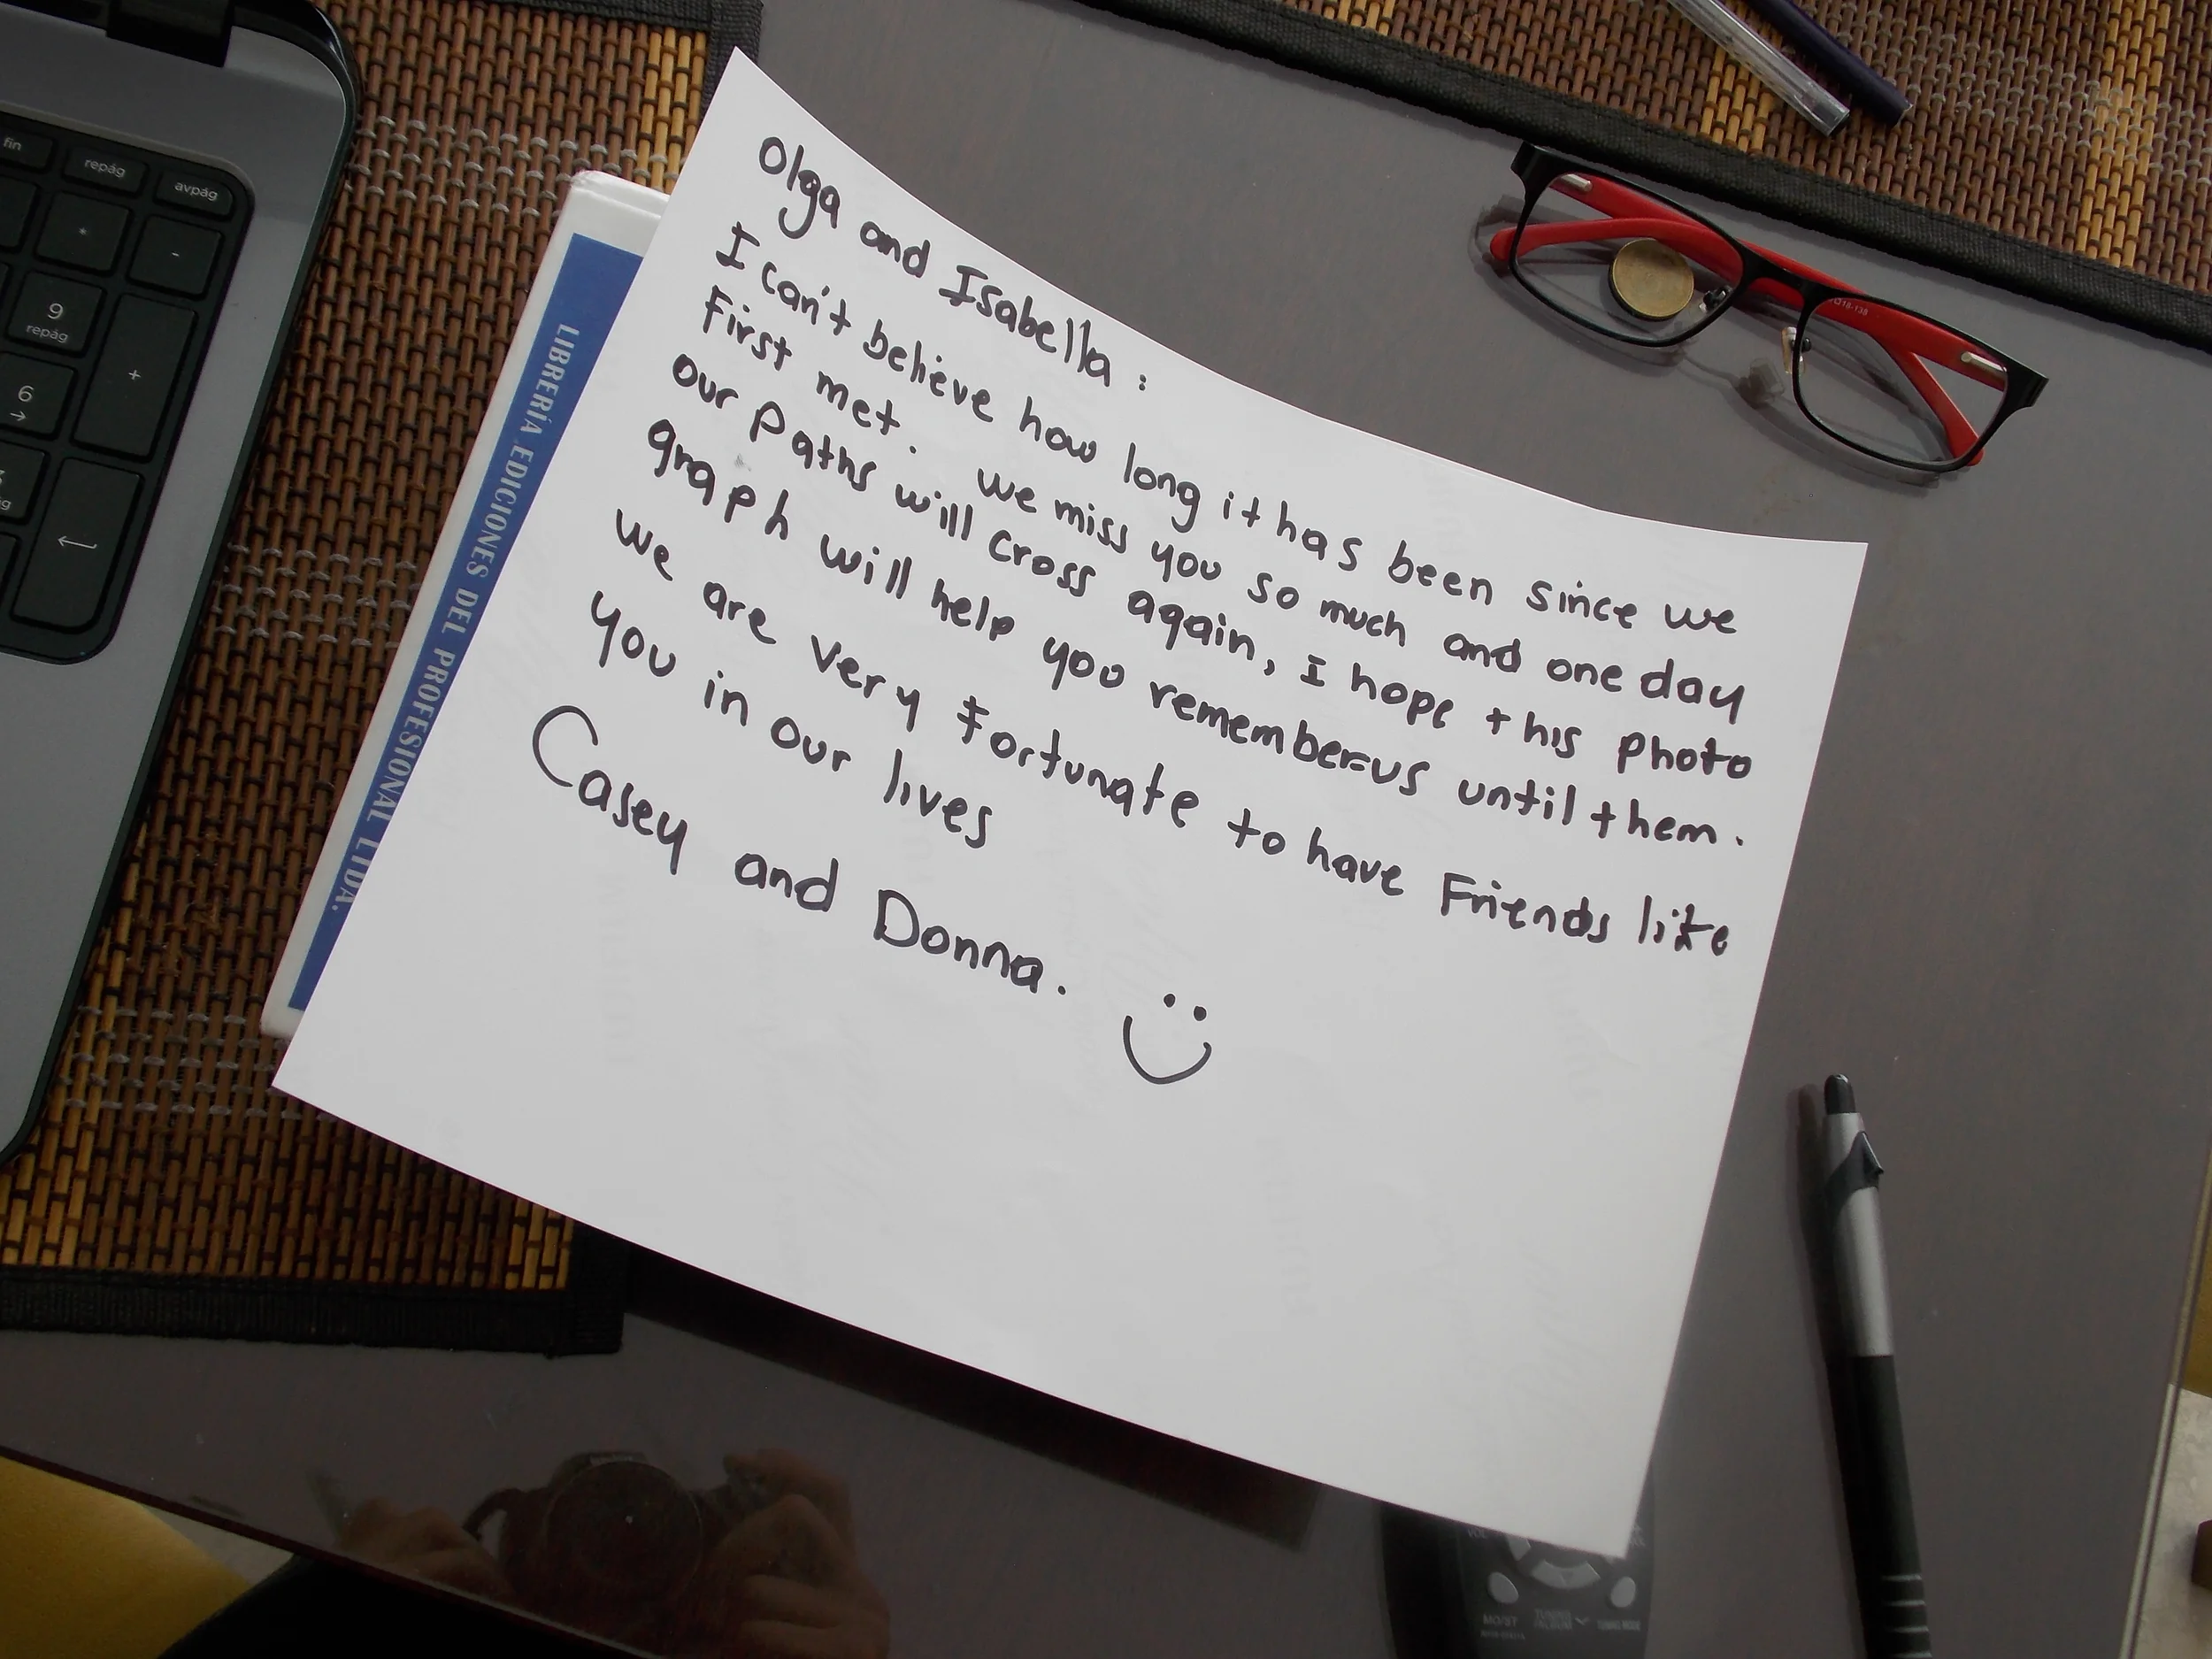 Olga and Isabella :
I can't believe how long it has been since we
First met. we miss you so much and one day
our paths will cross again, I hope this photo
graph will help you remember us until them.
we are very fortunate to have Friends like
you in our lives
Casey and Donna.
LIBRERÍA EDICIONES DEL PROFESIONAL LTDA.
fin
repág
avpág
*
-
9
repág
+
6
→
16-138